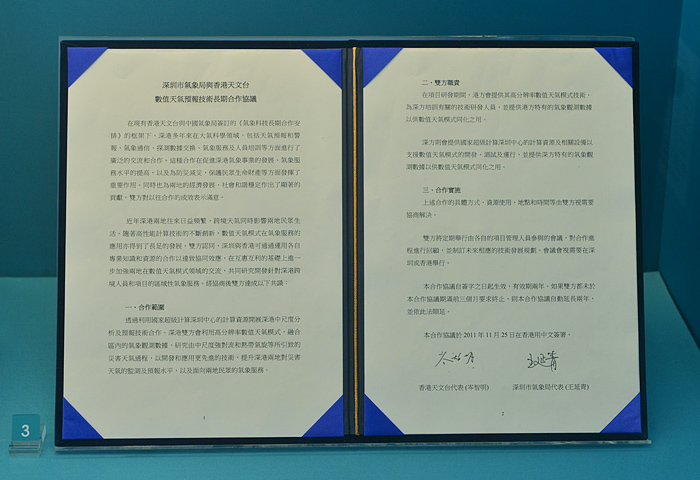 深圳市氣象局與香港天文台
數值天氣預報技術長期合作協議
在現有香港天文台與中國氣象局簽訂的《氣象科技長期合作安
排》的框架下，深港多年來在大氣科學領域，包括天氣預報和警
報、氣象通信、探測數據交換、氣象服務及人員培訓等方面進行了
廣泛的交流和合作。這種合作在促進深港氣象事業的發展、氣象服
務水平的提高，以及為防災減災、保護民眾生命財產等方面發揮了
重要作用，同時也為兩地的經濟發展、社會和諧穩定作出了顯著的
貢獻，雙方對以往合作的成效表示滿意。
近年深港兩地往來日益頻繁，跨境天氣同時影響兩地民眾生
活，隨著高性能計算技術的不斷創新，數值天氣模式在氣象服務的
應用亦得到了長足的發展。雙方認同，深圳與香港可通過運用各自
專業知識和資源的合作以達致協同效應，在互惠互利的基礎上進一
步加強兩地在數值天氣模式領域的交流，共同研究開發針對深港跨
境人員和項目的區域性氣象服務，經協商後雙方達成以下共識：
一、合作範圍
透過利用國家超級計算深圳中心的計算資源開展深港中尺度分
析及預報技術合作。深港雙方會利用高分辨率數值天氣模式，融合
區內的氣象觀測數據，研究由中尺度強對流和熱帶氣旋等所引致的
災害天氣過程，以開發和應用更先進的技術，提升深港兩地對災害
天氣的監測及預報水平，以及面向兩地民眾的氣象服務。
1
二、雙方職責
在項目研發期間，港方會提供其高分辨率數值天氣模式技術，
為深方培訓有關的技術研發人員，並提供港方特有的氣象觀測數據
以供數值天氣模式同化之用。
深方則會提供國家超級計算深圳中心的計算資源及相關設備以
支援數值天氣模式的開發、測試及運行，並提供深方特有的氣象觀
測數據以供數值天氣模式同化之用。
三、合作實施
上述合作的具體方式、資源使用、地點和時間等由雙方視需要
協商解決。
雙方將定期舉行由各自的項目管理人員參與的會議，對合作
進程進行回顧，並制訂未來相應的技術發展規劃。會議會視需要在深
圳或香港舉行。
本合作協議自簽字之日起生效，有效期兩年。如果雙方都未於
本合作協議期滿前三個月要求終止，則本合作協議自動延長兩年，
並依此法順延。
本合作協議於 2011 年 11 月 25 日在香港用中文簽署。
香港天文台代表 (岑智明)
深圳市氣象局代表 (王延青)
2
3